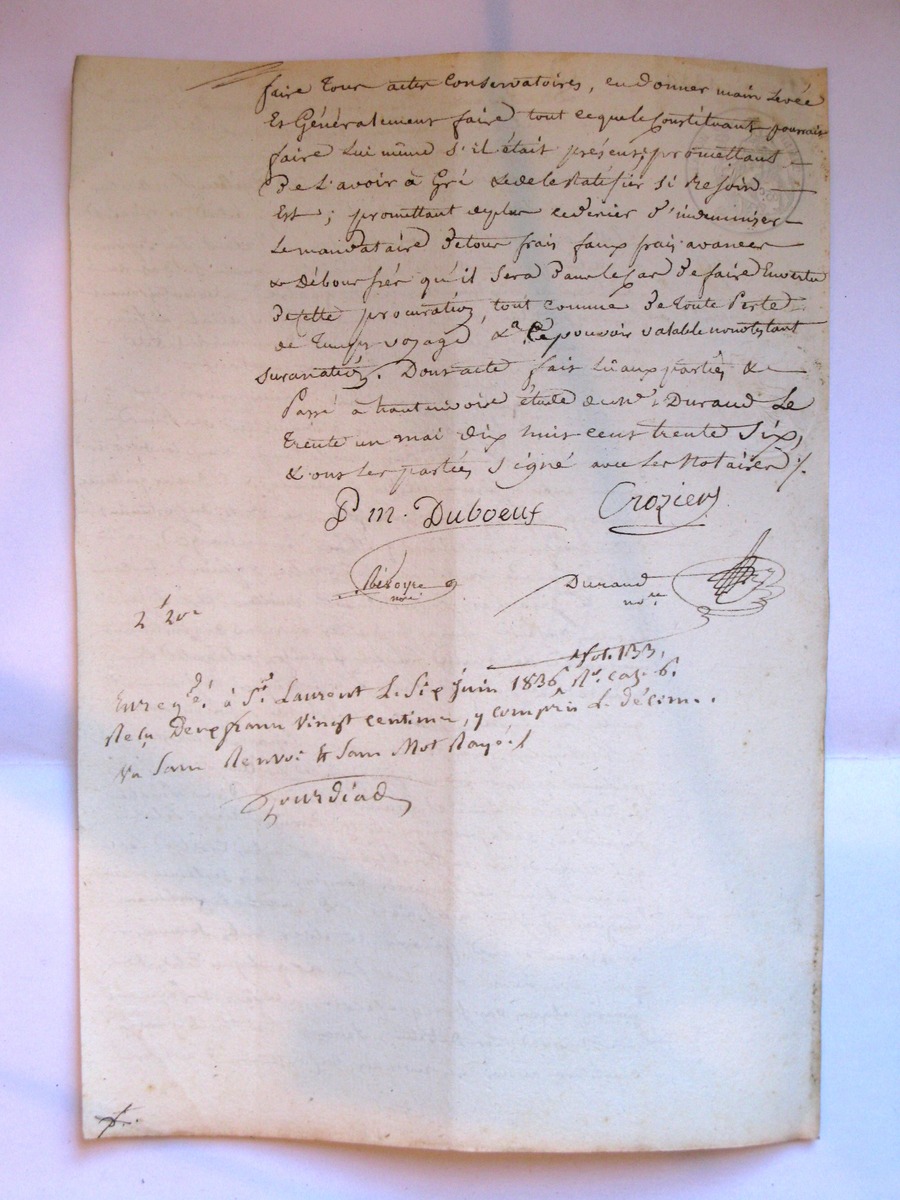 faire tous actes Conservatoires, en donner main levée
Et Généralement faire tout ce que le Constituant pourrait
faire lui même s'il était présent; promettant
De l'avoir à Gré & de le Ratifier si Besoin
Est; promettant de plus ce dernier d'indemniser
Le mandataire de tous frais faux frais avances
& Déboursés qu'il sera Dans le cas De faire En vertu
De cette procuration, tout comme De toute Perte
de temps voyage &a. Le pouvoir valable nonobstant
Suranation. Dont acte fait Lu aux parties &
Passé à hautrivoire étude de Me. Durand Le
trente un mai dix huit cent trente Six,
& ont les parties Signé avec les Notaires ./.
P m. Duboeuf Crozier
nre. Durand
nore.
2f 20c
fo. 133,
Enregé. à St. Laurent Le Six Juin 1836 Ro. case 6.
Reçu Deux francs Vingt centimes, y compris Le décime.
Va Sans Renvoi & Sans Mot Rayé./.
Jourdiad